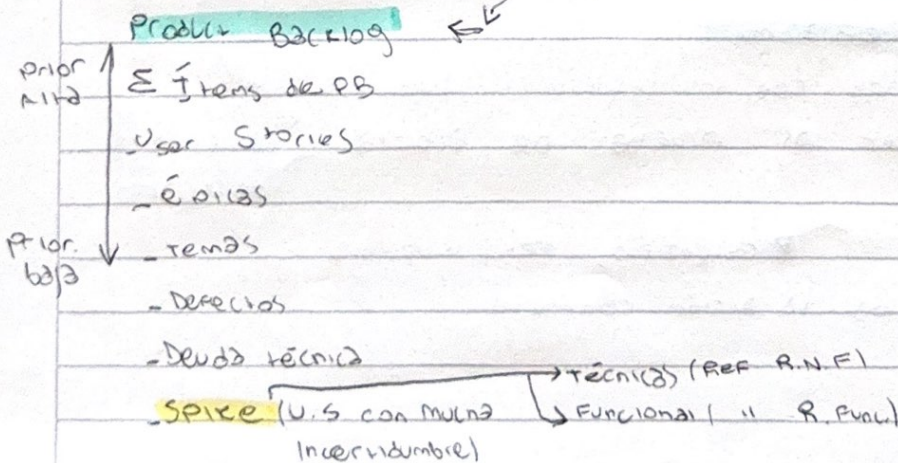 Product Backlog
prior alta
Σ Ítems de PB
_User Stories
_épicas
prior. baja
_temas
_Defectos
_Deuda técnica
→ técnicas (Ref R.N.F)
_Spike (U.S con mucha incertidumbre)
↳ Funcional ( " R. Func.)